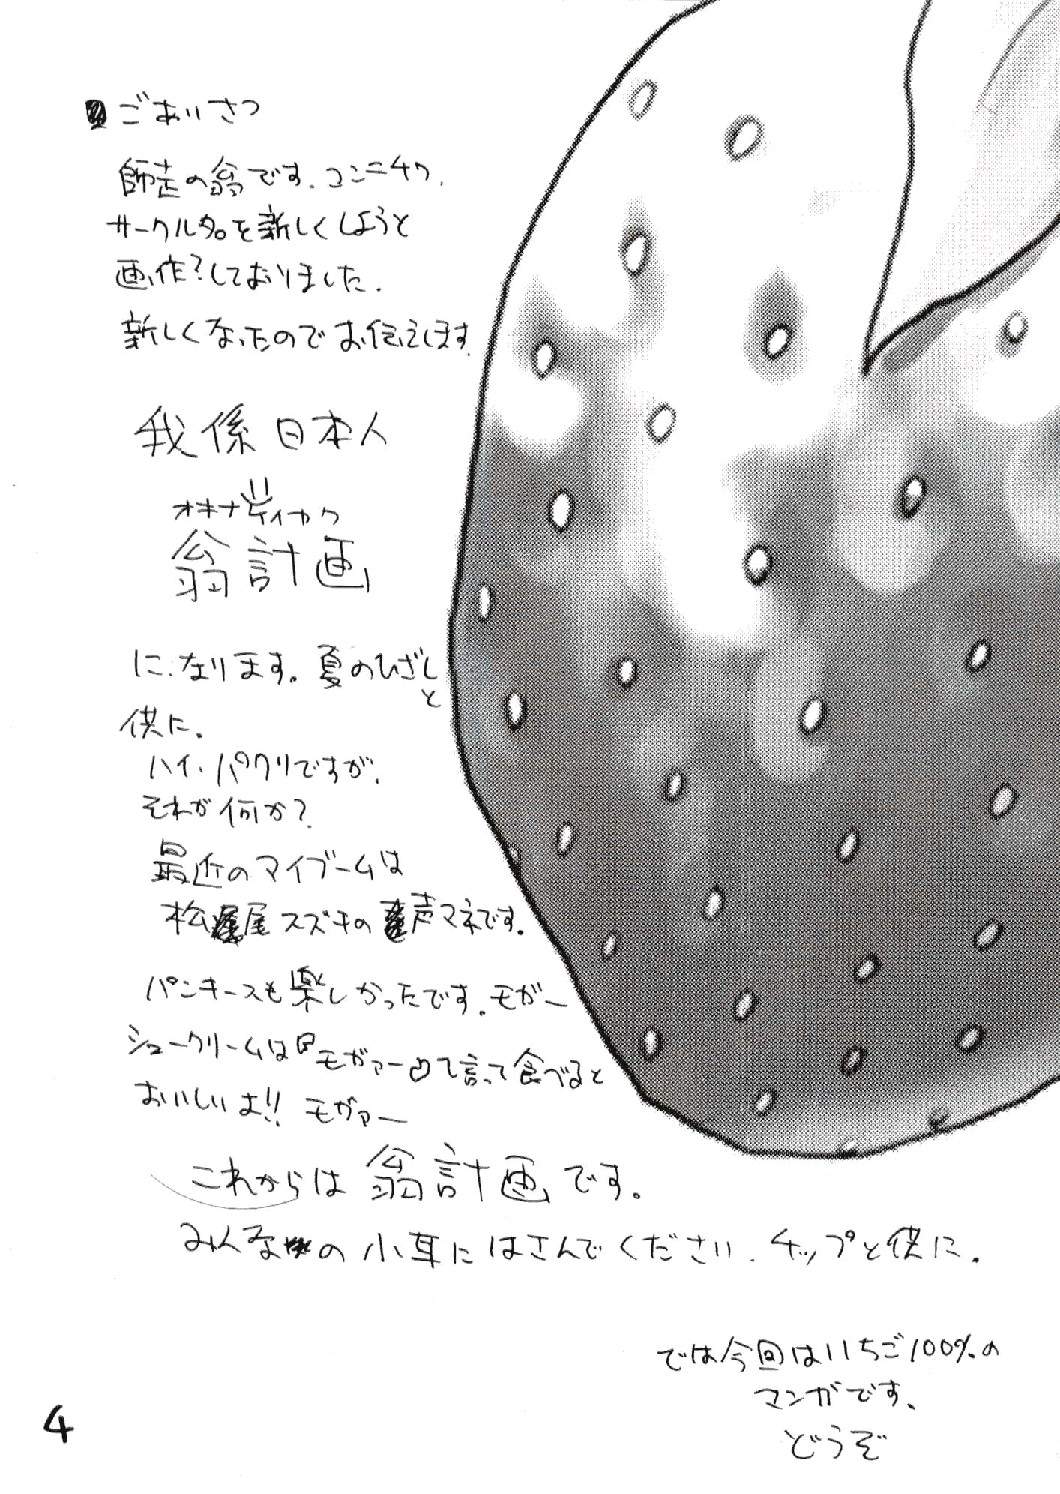 ごあいさつ
師走の翁です. コンニチワ.
サークル名を新しくしようと
画作?しておりました.
新しくなったのでお伝えします
我係日本人
オキナケイカク
翁計画
になります。夏のひざしと
供に.
ハイ.パクリですが.
それが何か?
最近のマイブームは
松尾スズキの声マネです.
パンキースも楽しかったです.モガー
シュークリームは『モガァー』て言って食べると
おいしいよ!! モガァー
これからは 翁計画 です。
みんなの小耳にはさんでください. チップと供に.
では今回はいちご100%の
マンガです.
どうぞ
4